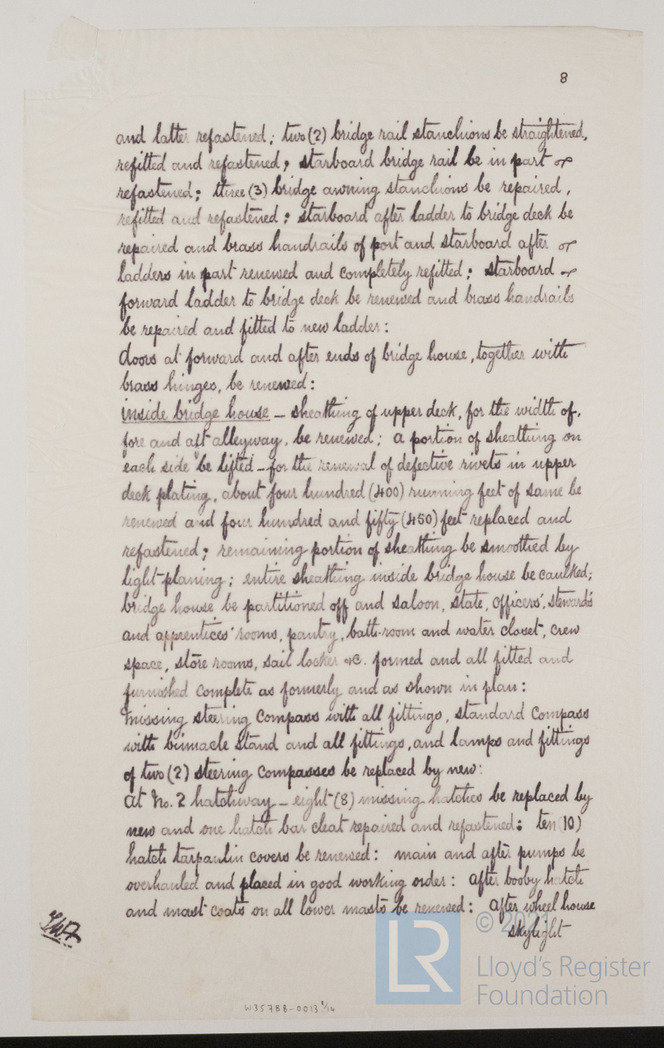 8
and latter refastened; two (2) bridge rail stanchions be straightened,
refitted and refastened; starboard bridge rail be in part
refastened; three (3) bridge awning stanchions be repaired,
refitted and refastened: starboard after ladder to bridge deck be
repaired and brass handrails of port and starboard after
ladders in part renewed and completely refitted; starboard
forward ladder to bridge deck be renewed and brass handrails
be repaired and fitted to new ladder:
doors at forward and after ends of bridge house, together with
brass hinges, be renewed:
inside bridge house - sheathing of upper deck, for the width of,
fore and aft alleyway, be renewed; a portion of sheathing on
each side be lifted - for the renewal of defective rivets in upper
deck plating, about four hundred (400) running feet of same be
renewed and four hundred and fifty (450) feet replaced and
refastened; remaining portion of sheathing be smoothed by
light planing; entire sheathing inside bridge house be caulked;
bridge house be partitioned off and saloon, state, officers', stewards'
and apprentices' rooms, pantry, bath-room and water closet, crew
space, store rooms, sail locker &c. formed and all fitted and
furnished complete as formerly and as shown in plan:
missing steering compass with all fittings, standard compass
with binnacle stand and all fittings, and lamps and fittings
of two (2) steering compasses be replaced by new:
at No. 2 hatchway - eight (8) missing hatches be replaced by
new and one hatch bar cleat repaired and refastened: ten (10)
hatch tarpaulin covers be renewed: main and after pumps be
overhauled and placed in good working order: after booby hatch
and mast coats on all lower masts be renewed: after wheel house
skylight
W3578B-0013 8/14
© 2021
LR
Lloyd's Register
Foundation